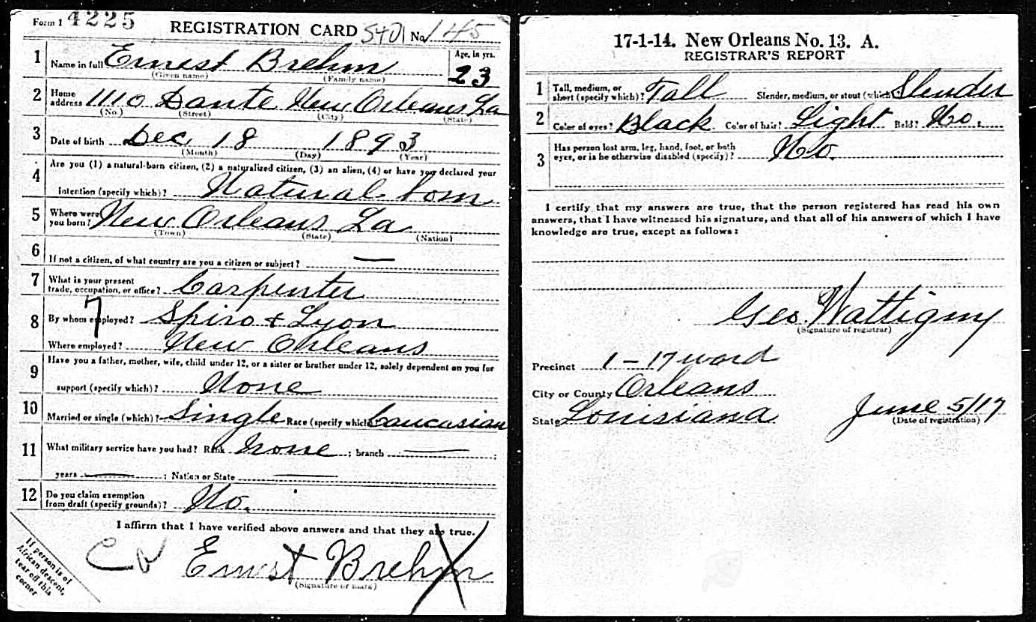 Form 1 4225 REGISTRATION CARD No. 145
1 Name in full Ernest Brehm Age, in yrs. 23
(Given name) (Family name)
2 Home address 1110 Dante New Orleans La
(No.) (Street) (City) (State)
3 Date of birth Dec 18 1893
(Month) (Day) (Year)
4 Are you (1) a natural-born citizen, (2) a naturalized citizen, (3) an alien, (4) or have you declared your
intention (specify which)? Natural born
5 Where were you born? New Orleans La
(Town) (State) (Nation)
6 If not a citizen, of what country are you a citizen or subject? —
7 What is your present trade, occupation, or office? Carpenter
8 By whom employed? Spiro + Lyon
Where employed? New Orleans
9 Have you a father, mother, wife, child under 12, or a sister or brother under 12, solely dependent on you for
support (specify which)? None
10 Married or single (which)? Single Race (specify which)? Caucasian
11 What military service have you had? Rank None ; branch —
years — ; Nation or State —
12 Do you claim exemption from draft (specify grounds)? No.
I affirm that I have verified above answers and that they are true.
Ernest Brehm X
(Signature or mark)
If person is of
African descent,
tear off this
corner
17-1-14. New Orleans No. 13. A.
REGISTRAR'S REPORT
1 Tall, medium, or short (specify which)? Tall Slender, medium, or stout (which)? Slender
2 Color of eyes? Black Color of hair? Light Bald? No.
3 Has person lost arm, leg, hand, foot, or both eyes, or is he otherwise disabled (specify)? No.
I certify that my answers are true, that the person registered has read his own
answers, that I have witnessed his signature, and that all of his answers of which I have
knowledge are true, except as follows:
Geo. Wattigny
(Signature of registrar)
Precinct 1-17 ward
City or County Orleans
State Louisiana June 5/17
(Date of registration)